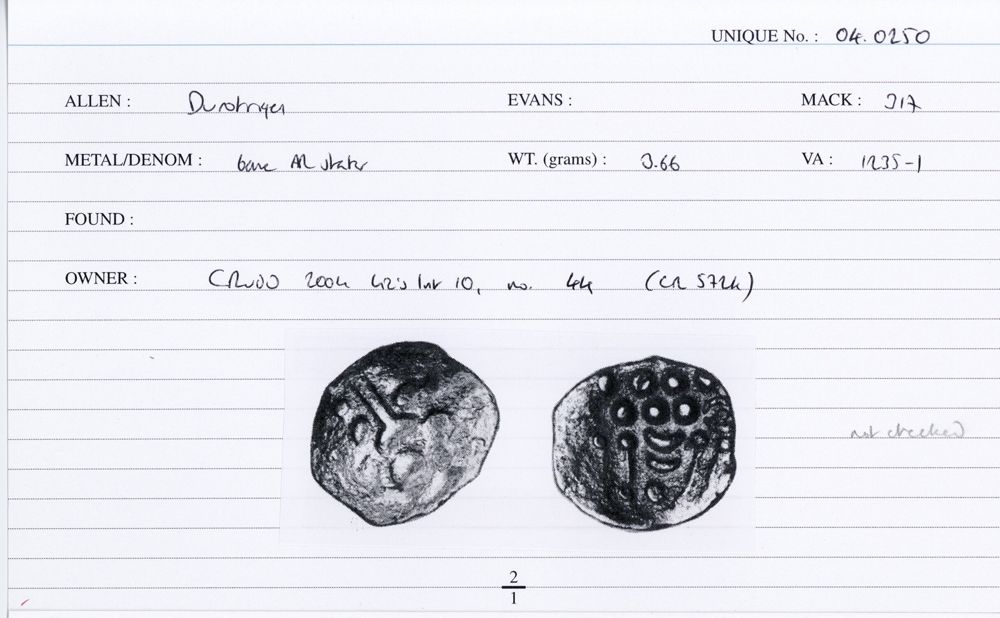 UNIQUE No. : 04.0250
ALLEN : Durotriges EVANS : MACK : 317
METAL/DENOM : base AR stater WT. (grams) : 3.66 VA : 1235-1
FOUND :
OWNER : 2004 no. 44 (CR 572k)
not checked
2
1